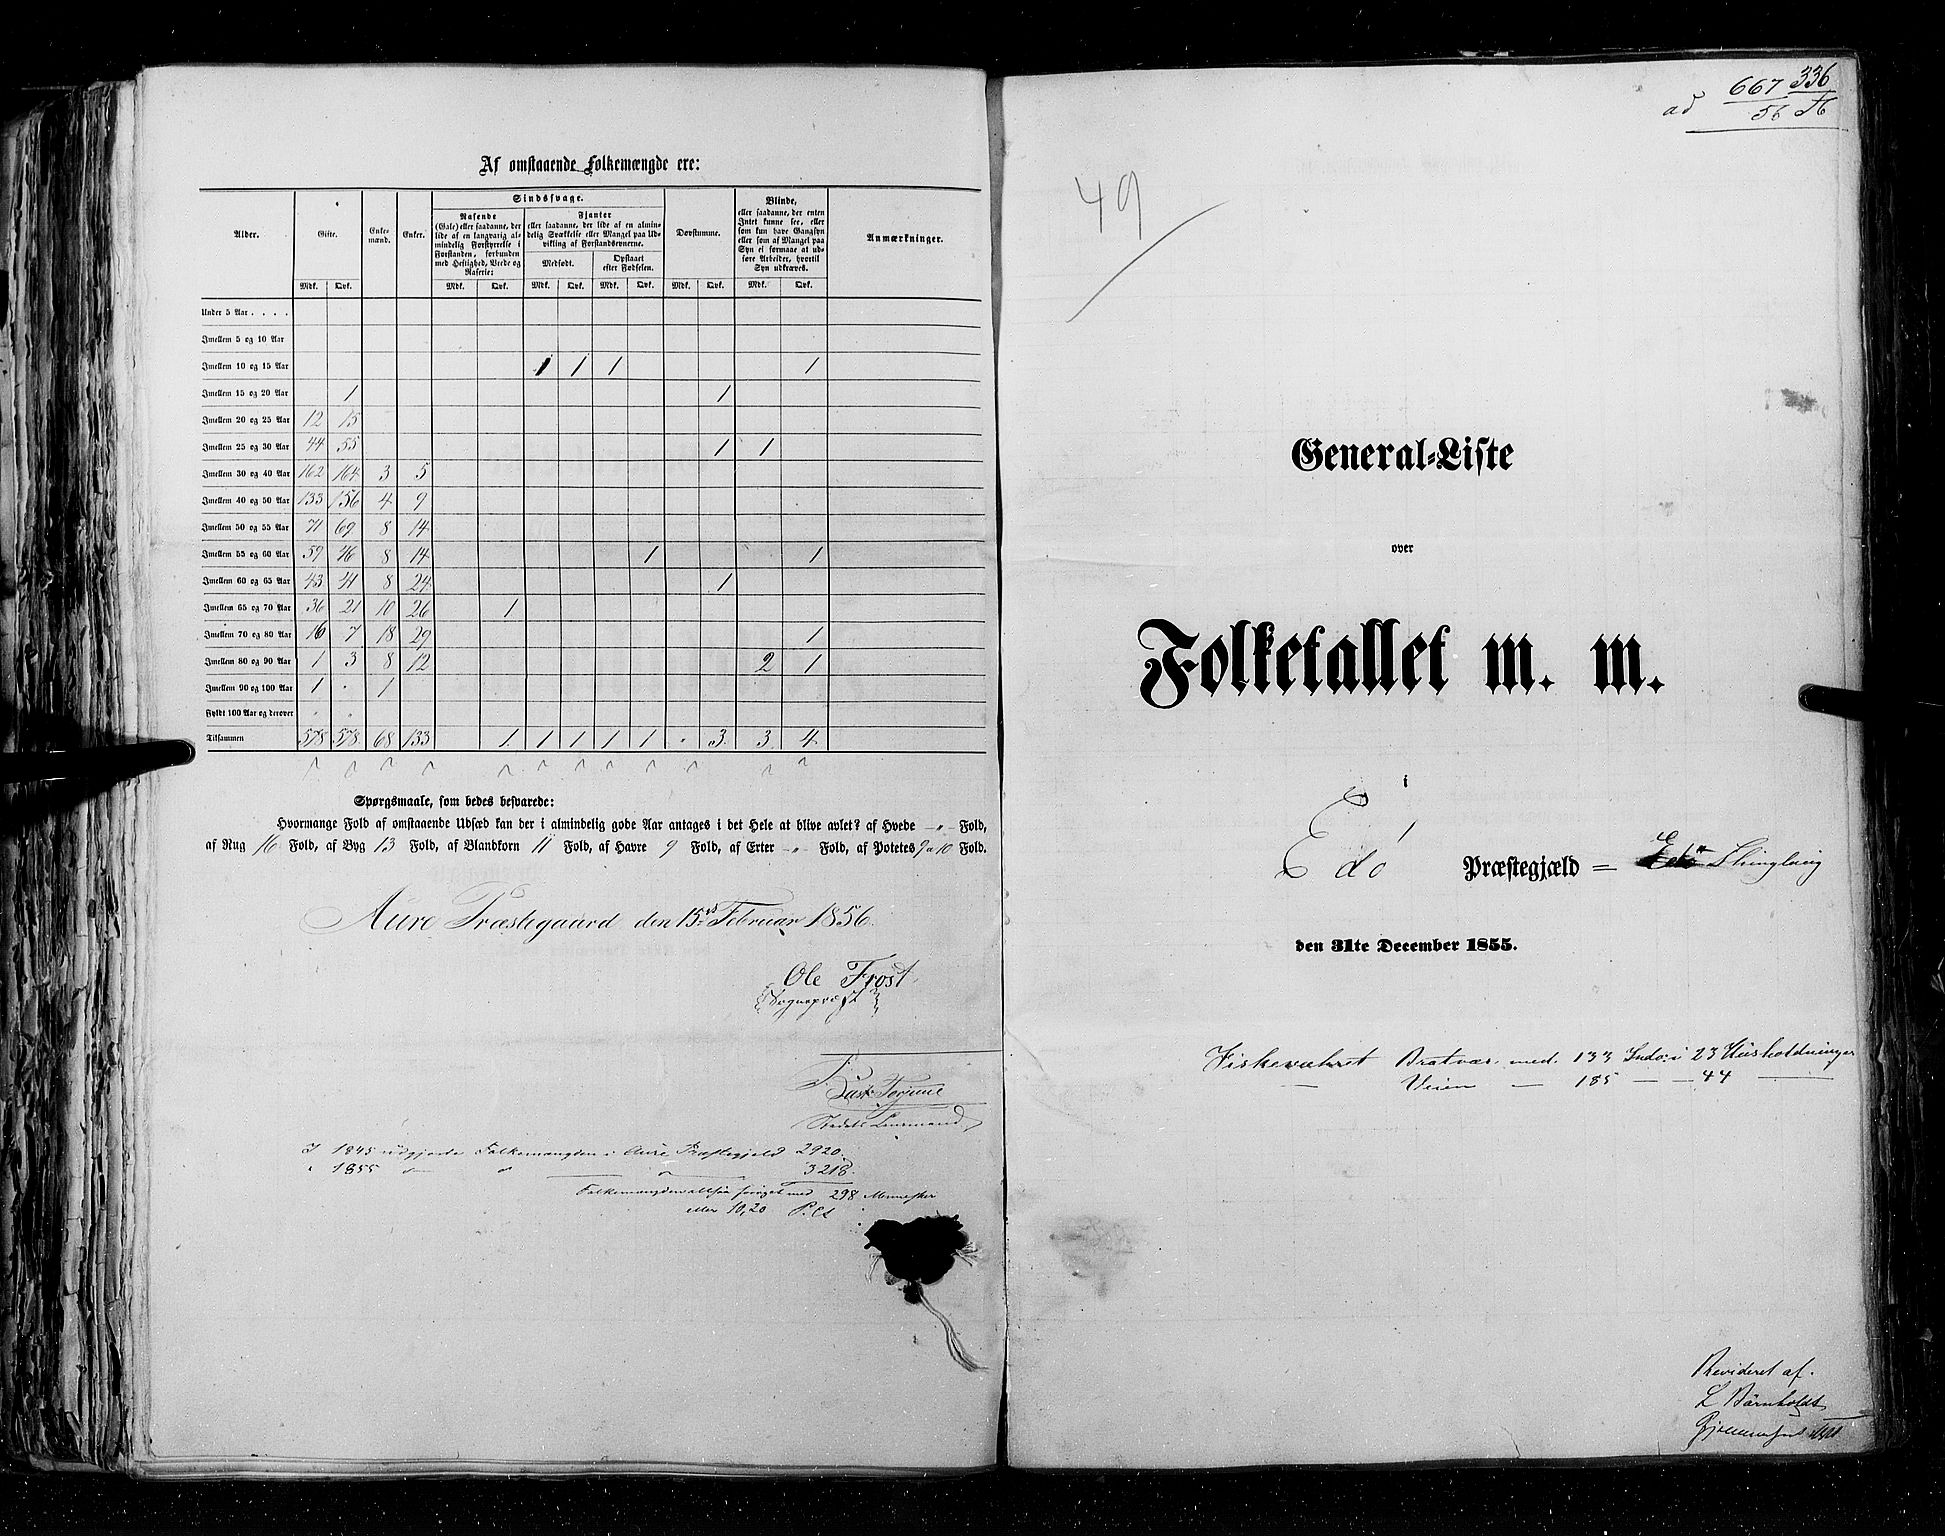 Af omstaaende Folkemængde ere:
Alder. Gifte. Enkemænd. Enker. Sindssvage. Døvstumme. Blinde, Anmærkninger.
Rasende
(Gale) eller saadanne, der
lide af en langvarig almindelig
Forstyrrelse i
Forstanden, forbunden
med Heftighed, Vrede og
Raserie:
Fjanter
eller saadanne, der lide af en almindelig
Svækkelse eller Mangel paa Udvikling
af Forstandsevnerne.
Medfødt. Opstaaet
efter Fødselen.
eller saadanne, der enten
Intet kunne see, eller
som kun have Gangsyn
eller som af Mangel paa
Syn ei formaae at udføre
Arbeider, hvortil
Syn udkræves.
Mdk. Qvk. Mdk. Qvk. Mdk. Qvk. Mdk. Qvk. Mdk. Qvk. Mdk. Qvk.
Under 5 Aar . . . .
Imellem 5 og 10 Aar
Imellem 10 og 15 Aar 1 1 1 1
Imellem 15 og 20 Aar 1 1
Imellem 20 og 25 Aar 12 15
Imellem 25 og 30 Aar 44 55 1 1
Imellem 30 og 40 Aar 162 164 3 5
Imellem 40 og 50 Aar 133 156 4 9
Imellem 50 og 55 Aar 71 69 8 14
Imellem 55 og 60 Aar 59 46 8 14 1 1
Imellem 60 og 65 Aar 43 41 8 24 1
Imellem 65 og 70 Aar 36 21 10 26 1
Imellem 70 og 80 Aar 16 7 18 29 1
Imellem 80 og 90 Aar 1 3 8 12 2 1
Imellem 90 og 100 Aar 1 . 1
Fyldt 100 Aar og derover . .
Tilsammen 578 578 68 133 1 1 1 1 1 . 3 3 4
Spørgsmaale, som bedes besvarede:
Hvormange Fold af omstaaende Udsæd kan der i almindelig gode Aar antages i det Hele at blive avlet? af Hvede -"- Fold,
af Rug 16 Fold, af Byg 13 Fold, af Blandkorn 11 Fold, af Havre 9 Fold, af Erter -"- Fold, af Potetes 9 a 10 Fold.
Aure Præstegaard den 15de Februar 1856.
Ole Frost
Sognepræst
I 1845 udgjorde Folkemængden i Aure Præstegjeld 2920.
" 1855 3218.
Folkemængden altsaa forøget med 298 Mennesker
eller 10,20 P.Ct
ad 667/56 336/56
49
General-Liste
over
Folketallet m. m.
i
Edø Præstegjæld =
den 31te December 1855.
Fiskeværet Bratvær med 133 Indv: i 23 Husholdninger
— Veien — 185 — — 44 —
Revideret af